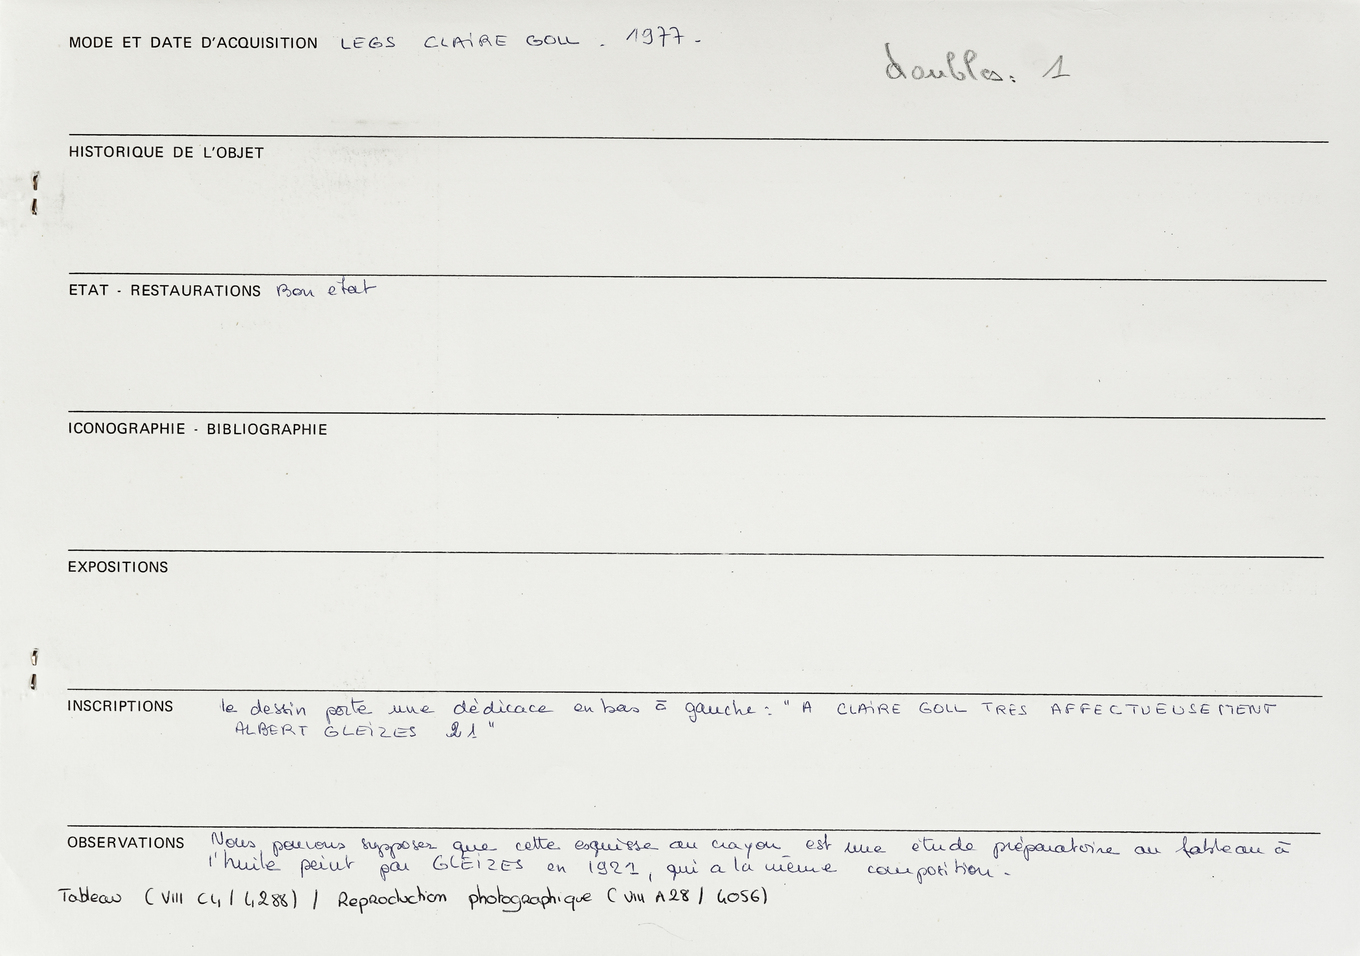 MODE ET DATE D'ACQUISITION LEGS CLAIRE GOLL . 1977 -
doubles: 1
HISTORIQUE DE L'OBJET
ETAT - RESTAURATIONS Bon etat
ICONOGRAPHIE - BIBLIOGRAPHIE
EXPOSITIONS
INSCRIPTIONS le dessin porte une dédicace en bas à gauche : " A CLAIRE GOLL TRES AFFECTUEUSEMENT
ALBERT GLEIZES 21 "
OBSERVATIONS Nous pouvons supposer que cette esquisse au crayon est une étude préparatoire au tableau à
l'huile peint par GLEIZES en 1921, qui a la même composition.
Tableau (VIII C4 / 4288) / Reproduction photographique (VIII A28 / 4056)